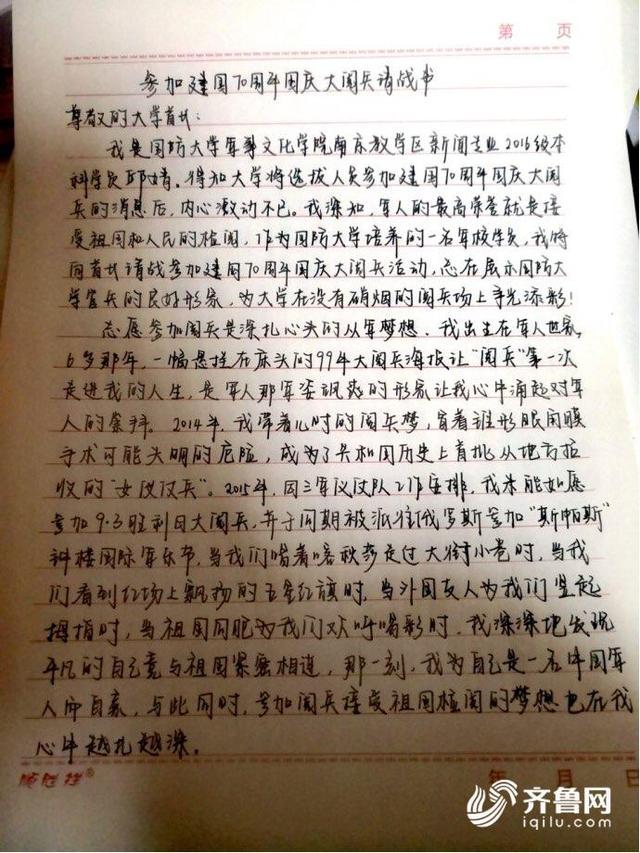 第 页
参加建国70周年国庆大阅兵请战书
尊敬的大学首长：
我是国防大学军事文化学院南京教学区新闻专业2016级本
科学员邱婧。得知大学将选拔人员参加建国70周年国庆大阅
兵的消息后，内心激动不已。我深知，军人的最高荣誉就是接
受祖国和人民的检阅，作为国防大学培养的一名军校学员，我特
向首长请战参加建国70周年国庆大阅兵活动，志在展示国防大
学官兵的良好形象，为大学在没有硝烟的阅兵场上争光添彩！
志愿参加阅兵是深扎心头的从军梦想。我出生在军人世家，
6岁那年，一幅悬挂在床头的99年大阅兵海报让“阅兵”第一次
走进我的人生，是军人那军姿飒爽的形象让我心中涌起对军
人的崇拜。2014年，我带着儿时的阅兵梦，冒着锥形眼角膜
手术可能失明的危险，成为了共和国历史上首批从地方招
收的“女仪仗兵”。2015年，因三军仪仗队工作安排，我未能如愿
参加9·3胜利日大阅兵，并于同期被派往俄罗斯参加“斯帕斯”
钟楼国际军乐节，当我们唱着喀秋莎走过大街小巷时，当我
们看到红场上飘扬的五星红旗时，当外国友人为我们竖起
拇指时，当祖国同胞为我们欢呼喝彩时，我深深地发现
平凡的自己竟与祖国紧密相连，那一刻，我为自己是一名中国军
人而自豪，与此同时，参加阅兵接受祖国检阅的梦想也在我
心中越扎越深。
年 月 日
齐鲁网
iqilu.com